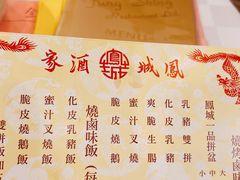 Fung Shing
Restaurant Ltd.
MENU
家酒城鳳
鳳城一品拼盆
小中大
乳豬雙拼
爽脆生腸
化皮乳豬
蜜汁叉燒
脆皮燒鵝
燒鹵味飯
化皮乳豬飯
蜜汁叉燒飯
脆皮燒鵝飯